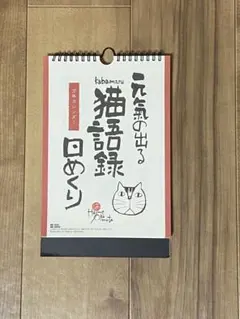 元氣の出る
kabamaru
猫語録
万年カレンダー
日めくり